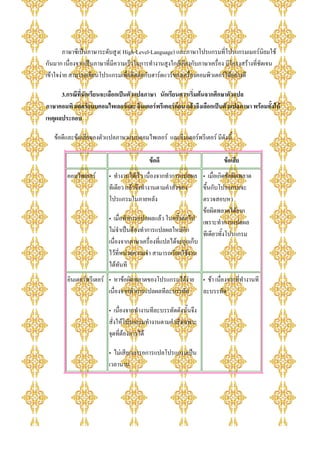 ภาษาซีเป็นภาษาระดับสูง( High-Level-Language) และภาษาโปรแกรมที่โปรแกรมเมอร์นิยมใช้
กันมาก เนื่องจากเป็นภาษาที่มีความเร็วในการทำงานสูงใกล้เคียงกับภาษาเครื่อง มีโครงสร้างที่ชัดเจน
เข้าใจง่าย สามารถเขียนโปรแกรมเพื่อติดต่อกับฮาร์ดแวร์ของเครื่องคอมพิวเตอร์ได้อย่างดี
3.กรณีที่นักเรียนจะเลือกเป็นตัวแปลภาษา นักเรียนควรเริ่มต้นจากศึกษาตัวแปล
ภาษาคอมพิวเตอร์แบบคอมไพเลอร์และ อินเตอร์พรีเตอร์ก่อน แล้วจึงเลือกเป็นตัวแปลภาษา พร้อมทั้งให้
เหตุผลประกอบ
ข้อดีและข้อเสียของตัวแปลภาษาแบบคอมไพเลอร์ และอินเตอร์พรีเตอร์ มีดังนี้
ข้อดี ข้อเสีย
คอมไพเลอร์ • ทำงานได้เร็ว เนื่องจากทำการแปลผล
ทีเดียว แล้วจึงทำงานตามคำสั่งของ
โปรแกรมในภายหลัง
• เมื่อทำการแปลผลแล้ว ในครั้งต่อไป
ไม่จำเป็นต้องทำการแปลผลใหม่อีก
เนื่องจากภาษาเครื่องที่แปลได้จะถูกเก็บ
ไว้ที่หน่วยความจำ สามารถเรียกใช้งาน
ได้ทันที
• เมื่อเกิดข้อผิดพลาด
ขึ้นกับโปรแกรมจะ
ตรวจสอบหา
ข้อผิดพลาดได้ยาก
เพราะทำการแปลผล
ทีเดียวทั้งโปรแกรม
อินเตอร์พรีเตอร์ • หาข้อผิดพลาดของโปรแกรมได้ง่าย
เนื่องจากทำการแปลผลทีละบรรทัด
• เนื่องจากทำงานทีละบรรทัดดังนั้นจึง
สั่งให้โปรแกรมทำงานตามคำสั่งเฉพาะ
จุดที่ต้องการได้
• ไม่เสียเวลารอการแปลโปรแกรมเป็น
เวลานาน
• ช้า เนื่องจากที่ทำงานที
ละบรรทัด